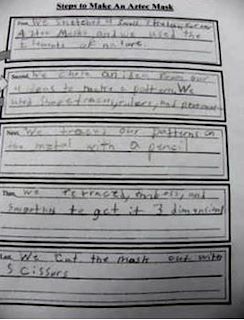 Steps to Make An Aztec Mask
First, We sketched 4 small
Aztec Masks and we used the
of nature.
Second, We chose an idea from our
4 ideas to make a pattern. We
used rulers, and
Next, We traced our patterns on
the metal with a pencil
Then, We and
to get it 3 dimensional
Last, We cut the mask out with
Scissors